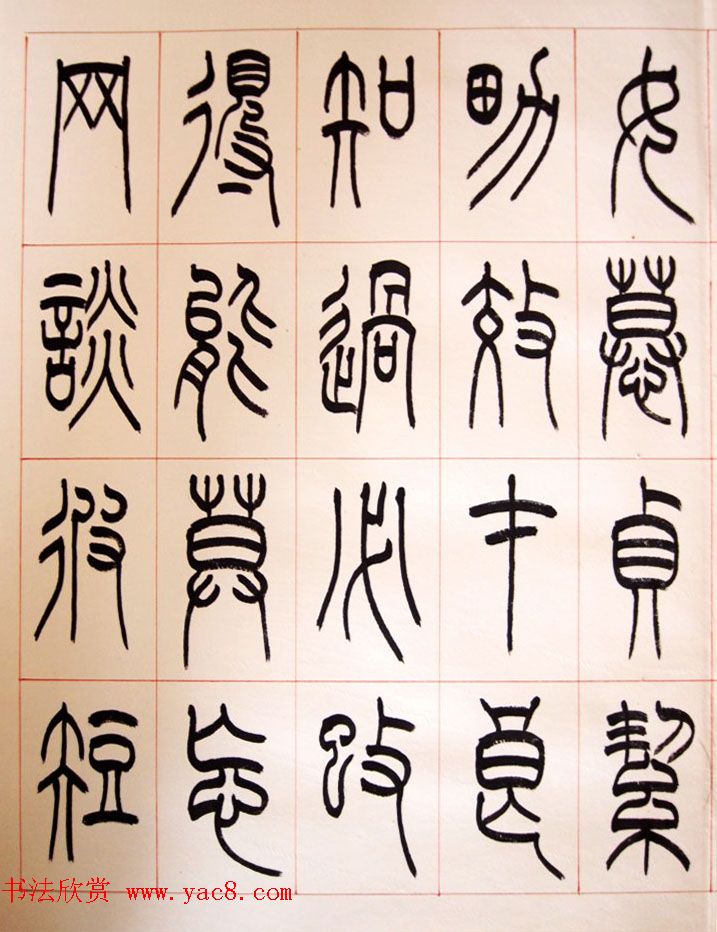 女慕貞絜
男效才良
知過必改
得能莫忘
网談彼短
书法欣赏 www.yac8.com